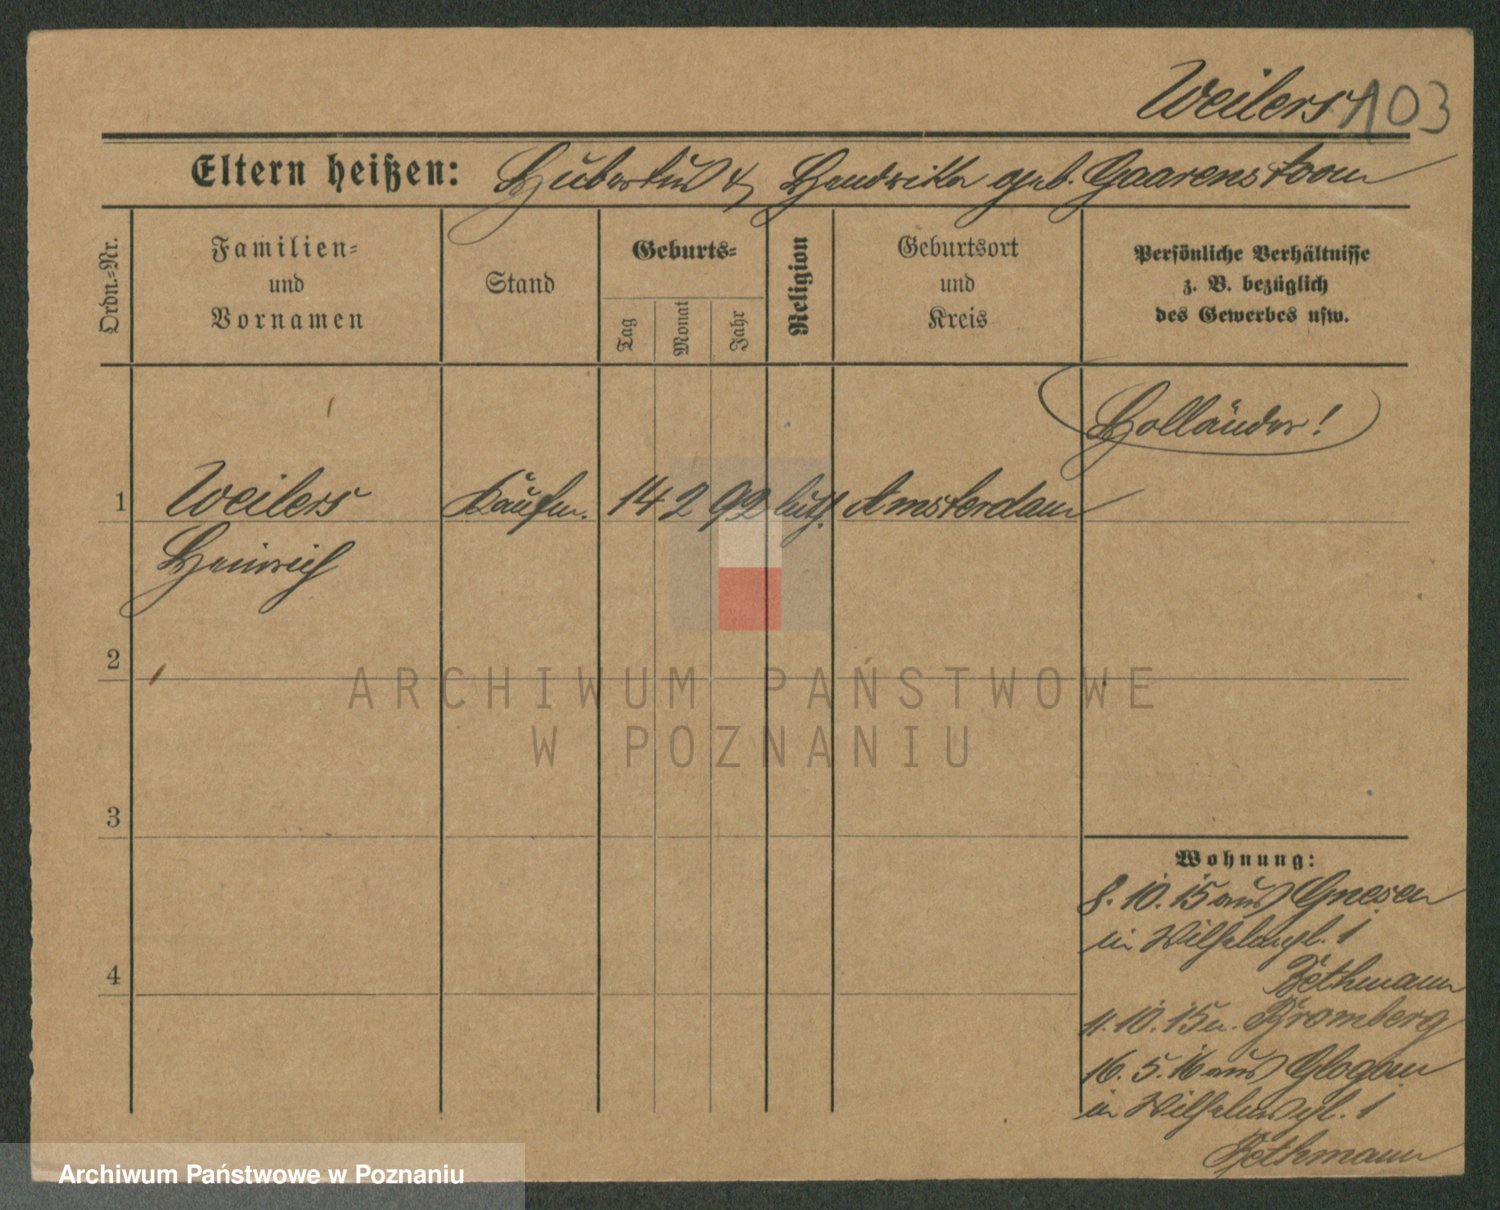 Weilers 103
Eltern heißen: Hubertus & Hendrika geb. Gaarenstoom
Ordn.=Nr.
Familien=
und
Vornamen
Stand
Geburts=
Tag
Monat
Jahr
Religion
Geburtsort
und
Kreis
Persönliche Verhältnisse
z. B. bezüglich
des Gewerbes usw.
Holländer!
1 Weilers Kaufm. 14 2 92 luth. Amsterdam
Heinrich
2
3
4
Wohnung:
8. 10. 15 aus Gnesen
in Wilhelmspl. 1
Bethmann
11. 10. 15 n. Bromberg
16. 5. 16 aus Glogau
in Wilhelmspl. 1
Bethmann
ARCHIWUM PAŃSTWOWE
W POZNANIU
Archiwum Państwowe w Poznaniu